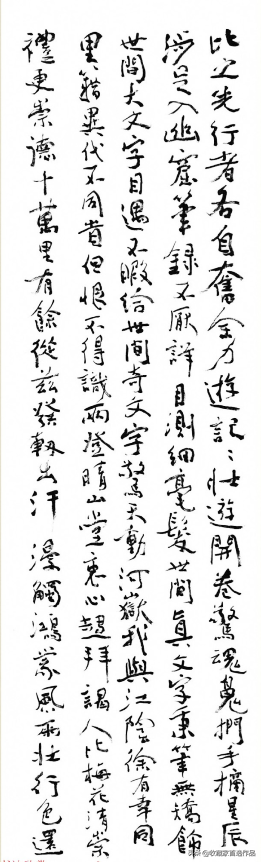 比之先行者各自奮全力遊記記壯遊開卷驚魂魄捫手摘星辰
涉足入幽窟筆錄不厭詳目測細毫髮世間真文字秉筆無矯飾
世間大文字目遇不暇給世間奇文字驚天動河嶽我與江陰徐有幸同
里籍異代不同貴但恨不得識兩登晴山堂衷心趨拜謁人比梅花清崇
禮更崇德十萬里有餘從茲發軔出汗漫觸鴻蒙風雨壯行色還
头条@收藏家首选作品